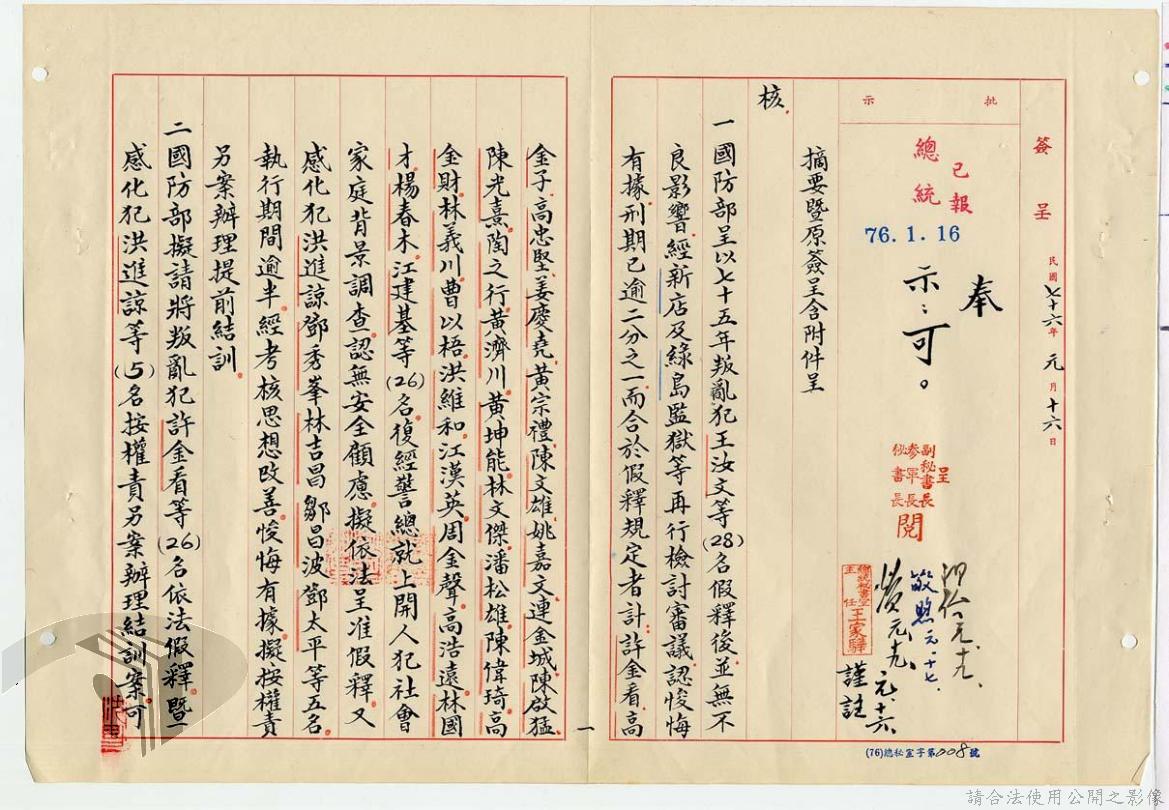 簽呈
民國七十六年元月十六日
批示
已報
總統
76.1.16
奉
示:可。
呈
副秘書長
參軍長
秘書長
閱
元.十九、
敬煦元.十七、
元.十九、
總統秘書室
主任
王家驊
謹註
元.十六
摘要暨原簽呈含附件呈
核.
一國防部呈以七十五年叛亂犯王汝文等(28)名假釋後並無不
良影響.經新店及綠島監獄等再行檢討審議.認悛悔
有據.刑期已逾二分之一而合於假釋規定者計:許金看.高
金子.高忠堅.姜慶堯.黃宗禮.陳文雄.姚嘉文.連金城.陳啟猛.
陳光熹.陶之行.黃濟川.黃坤能.林文傑.潘松雄.陳偉琦.高
金財.林義川.曹以梧.洪維和.江漢英.周金聲.高浩遠.林國
才.楊春木.江建基等(26)名.復經警總就上開人犯社會
家庭背景調查.認無安全顧慮.擬依法呈准假釋.又
感化犯洪進諒.鄧秀峯.林吉昌.鄒昌波.鄧太平等五名.
執行期間逾半.經考核思想改善悛悔有據.擬按權責
另案辦理提前結訓.
二國防部擬請將叛亂犯許金看等(26)名依法假釋.暨
感化犯洪進諒等(5)名按權責另案辦理結訓案.可
一
(76)總秘室字第008號
請合法使用公開之影像